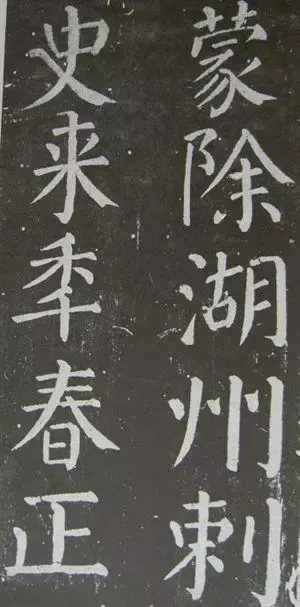 蒙除湖州刺
史来年春正